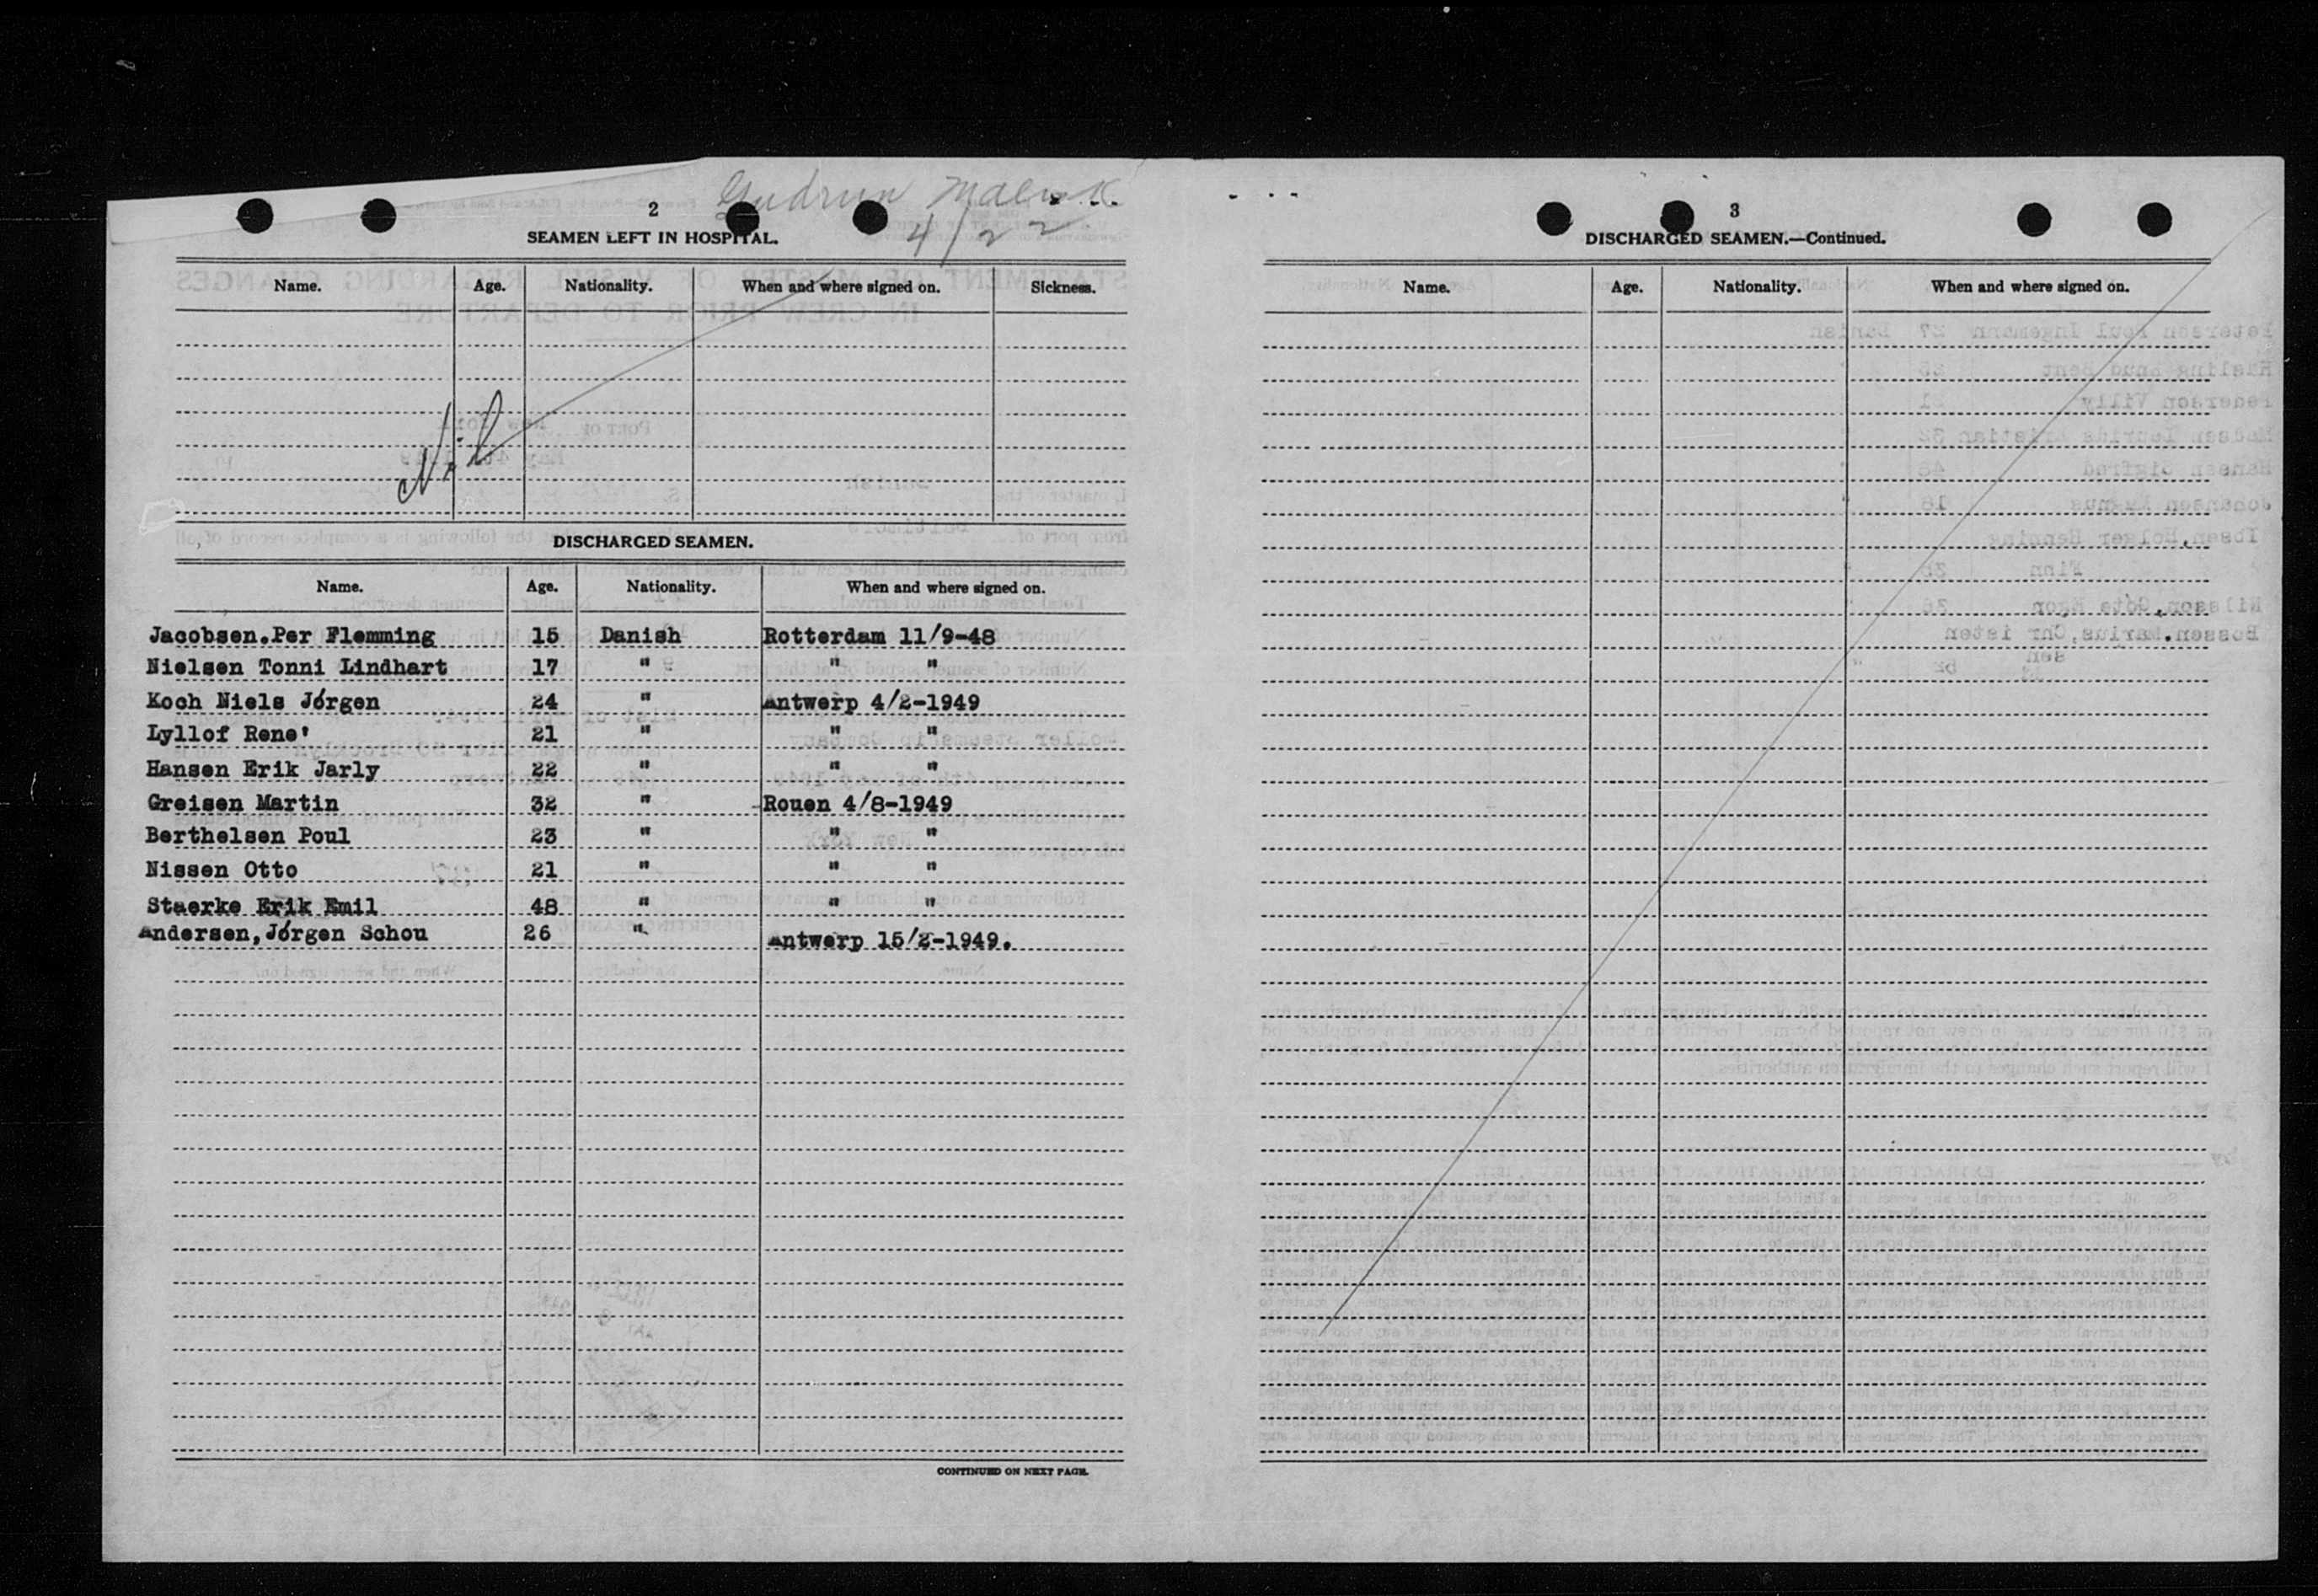 Gudrun Maersk
4/22
2
SEAMEN LEFT IN HOSPITAL.
Name. Age. Nationality. When and where signed on. Sickness.
Nil
DISCHARGED SEAMEN.
Name. Age. Nationality. When and where signed on.
Jacobsen.Per Flemming 15 Danish Rotterdam 11/9-48
Nielsen Tonni Lindhart 17 " " "
Koch Niels Jórgen 24 " Antwerp 4/2-1949
Lyllof Rene' 21 " " "
Hansen Erik Jarly 22 " " "
Greisen Martin 32 " Rouen 4/8-1949
Berthelsen Poul 23 " " "
Nissen Otto 21 " " "
Staerke Erik Emil 48 " " "
Andersen,Jórgen Schou 26 " Antwerp 15/2-1949.
CONTINUED ON NEXT PAGE.
3
DISCHARGED SEAMEN.—Continued.
Name. Age. Nationality. When and where signed on.